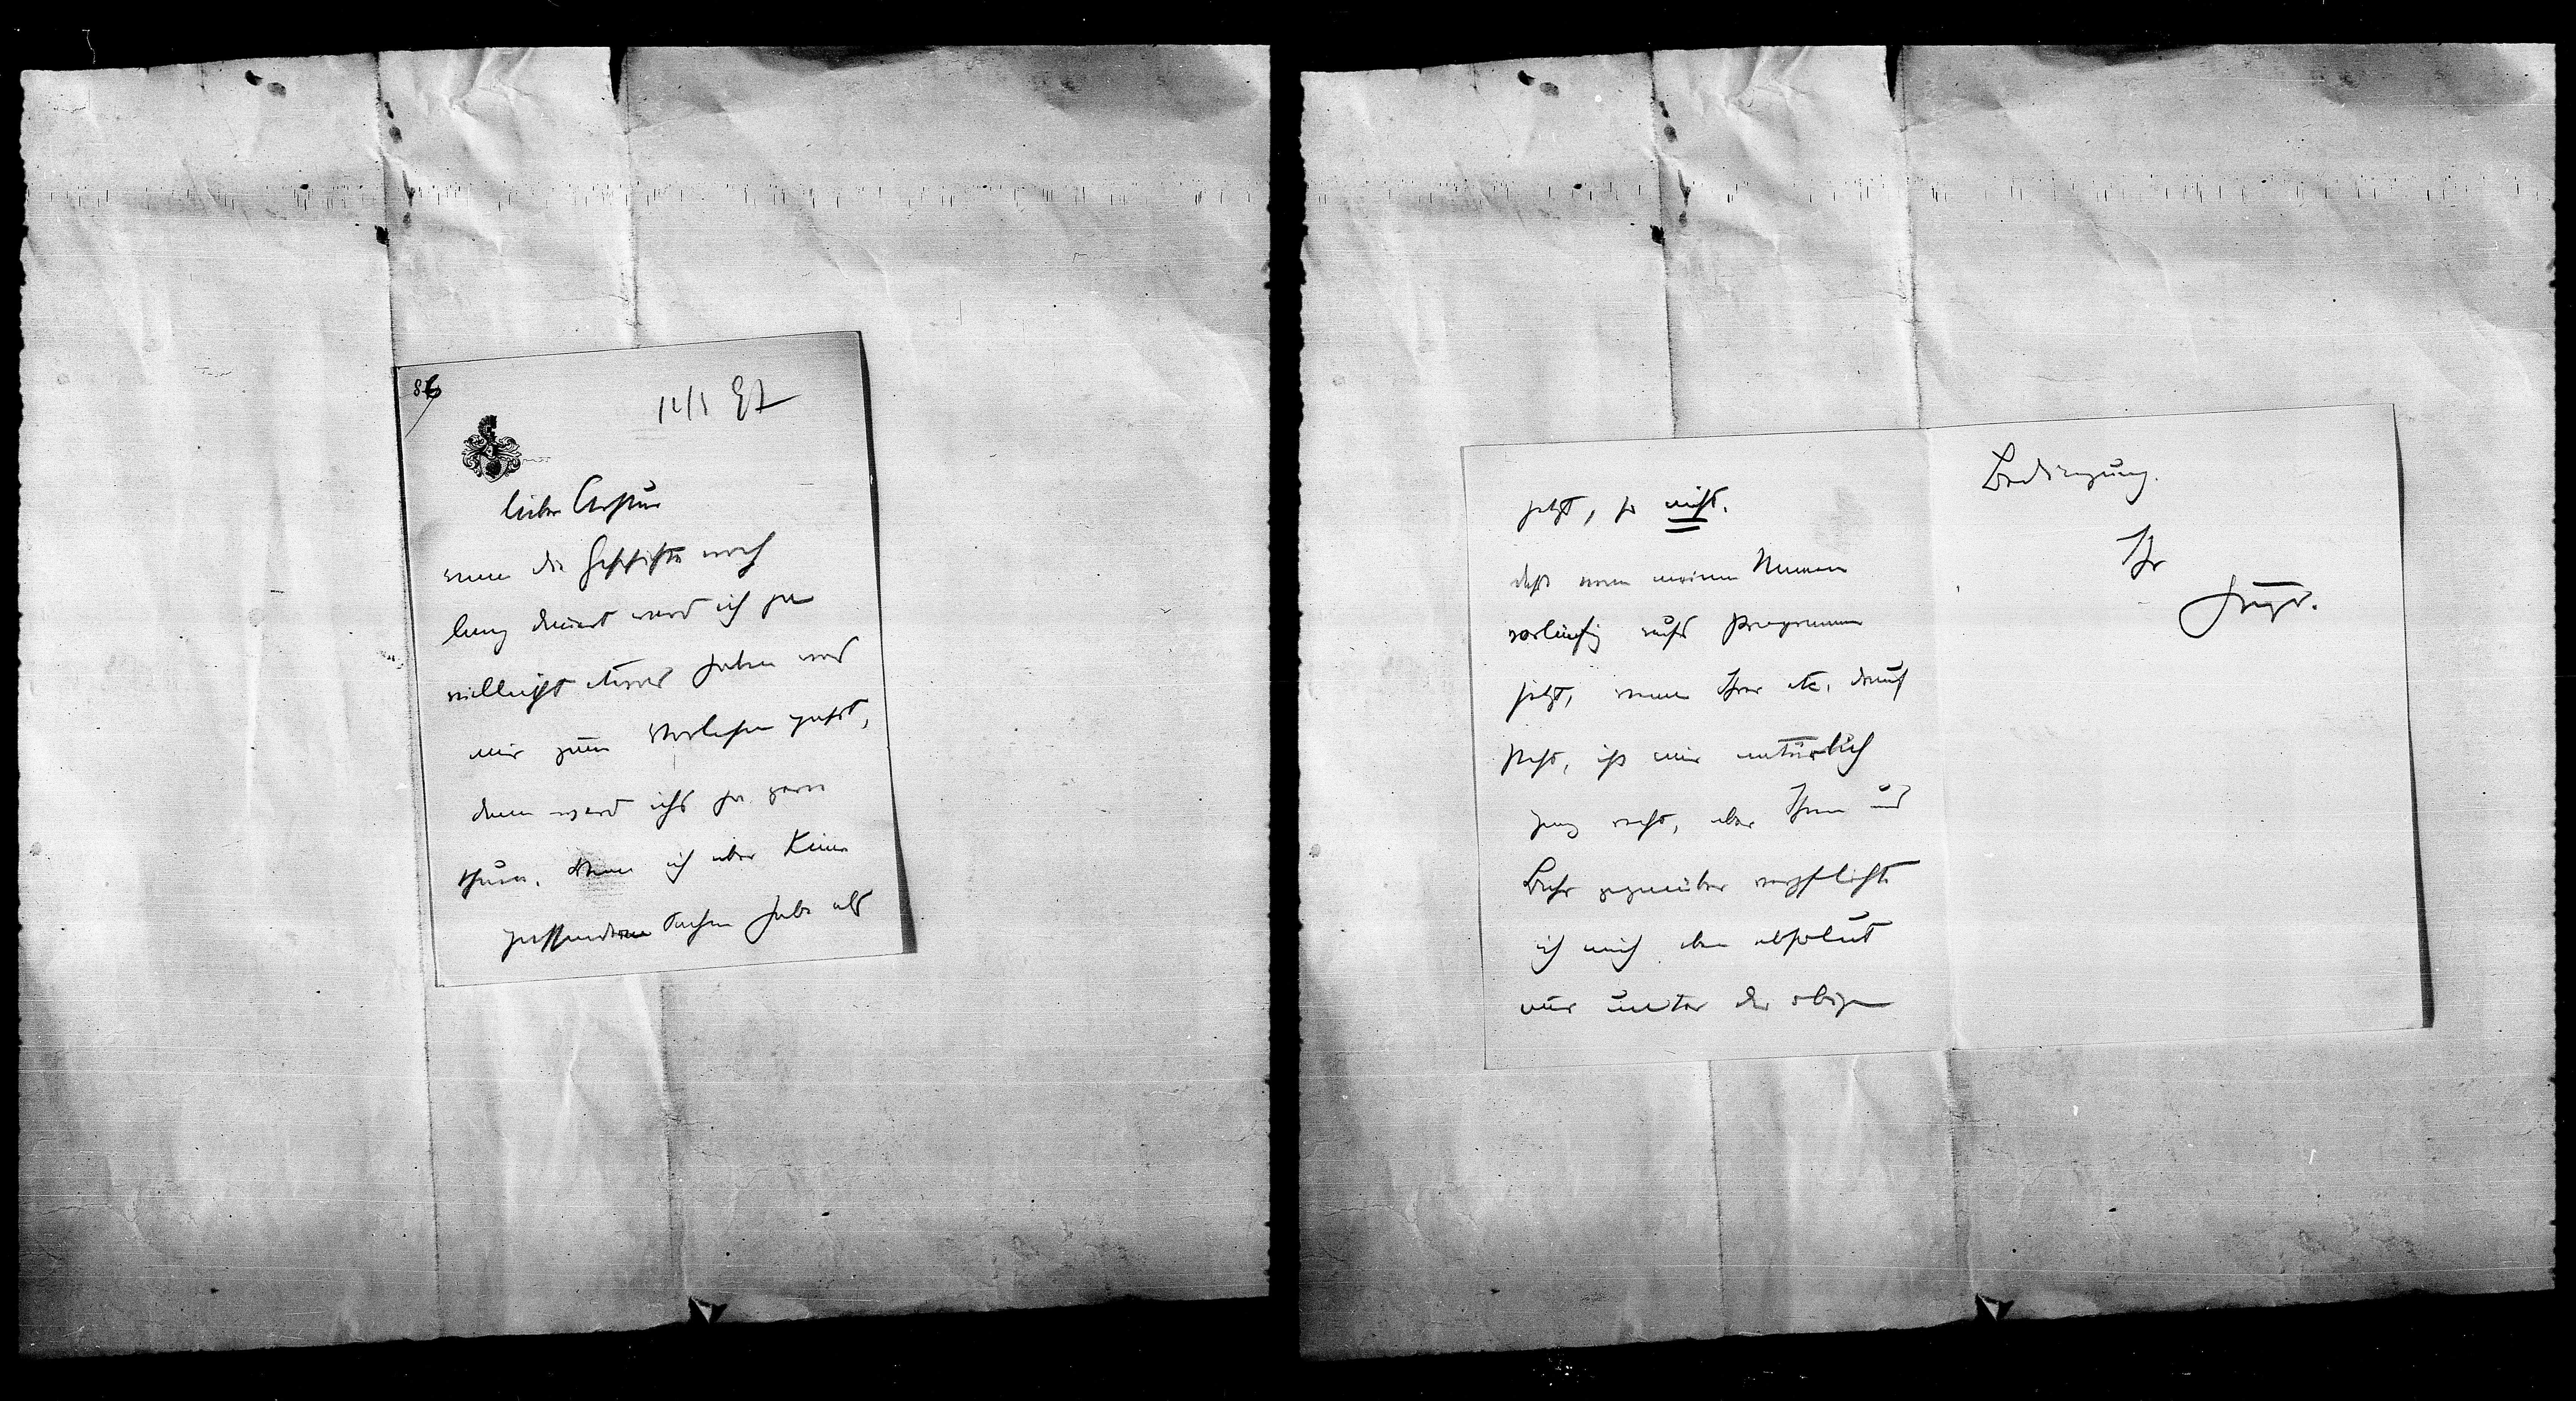 86
12/1 97
lieber Arthur
wenn die Geschichte noch
lang dauert werd ich ja
vielleicht etwas haben was
mir zum Vorlesen passt,
dann werd ichs ja gern
thun. Wenn ich aber keine
passendere Sachen habe als
jetzt, so nicht.
dass man meinen Namen
vorläufig aufs Programm
setzt, wenn Ihrer etc. drauf
steht, ist mir natürlich
ganz recht, aber Ihnen und
Bahr gegenüber verpflichte
ich mich eben absolut
nur unter der obigen
Bedingung.
Ihr
Hugo.